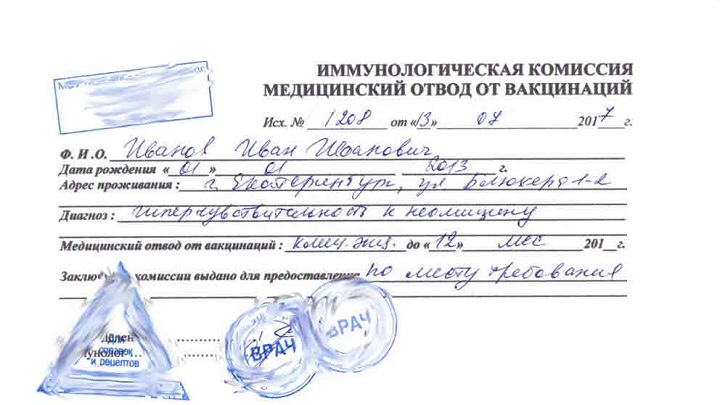 ИММУНОЛОГИЧЕСКАЯ КОМИССИЯ
МЕДИЦИНСКИЙ ОТВОД ОТ ВАКЦИНАЦИЙ
Исх. № 1208 от «13» 07 2017 г.
Ф. И .О. Иванов Иван Иванович
Дата рождения « 01 » 01 2013 г.
Адрес проживания : г. Екатеринбург, ул. Блюхера 1-2
Диагноз : гиперчувствительность к неомицину
Медицинский отвод от вакцинаций : до « 12 » мес 201 г.
комиссии выдано для предоставления по месту требования
справок
и рецептов
ВРАЧ
ВРАЧ